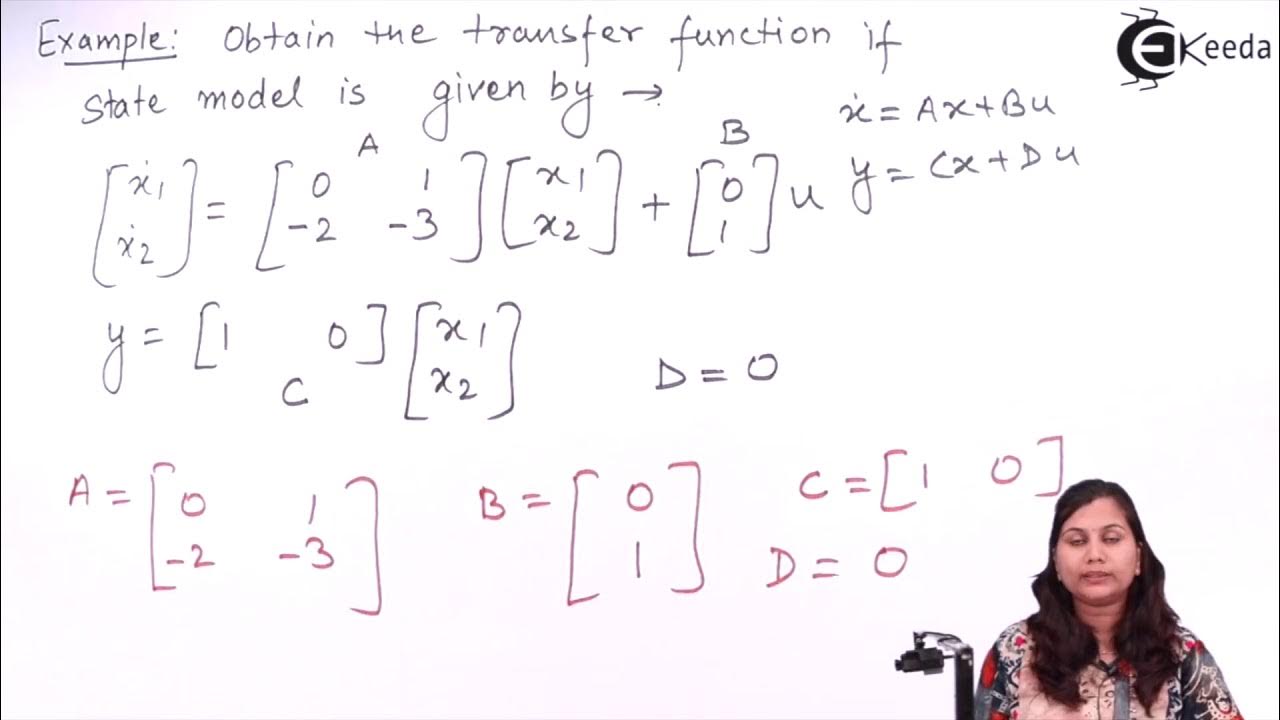 Example: Obtain the transfer function if
Ekeeda
state model is given by →
ẋ = Ax + Bu
y = Cx + Du
A B
[ẋ1 ẋ2] = [0 1 -2 -3] [x1 x2] + [0 1] u
y = [1 0] [x1 x2]
C
D = 0
A = [0 1 -2 -3] B = [0 1] C = [1 0]
D = 0